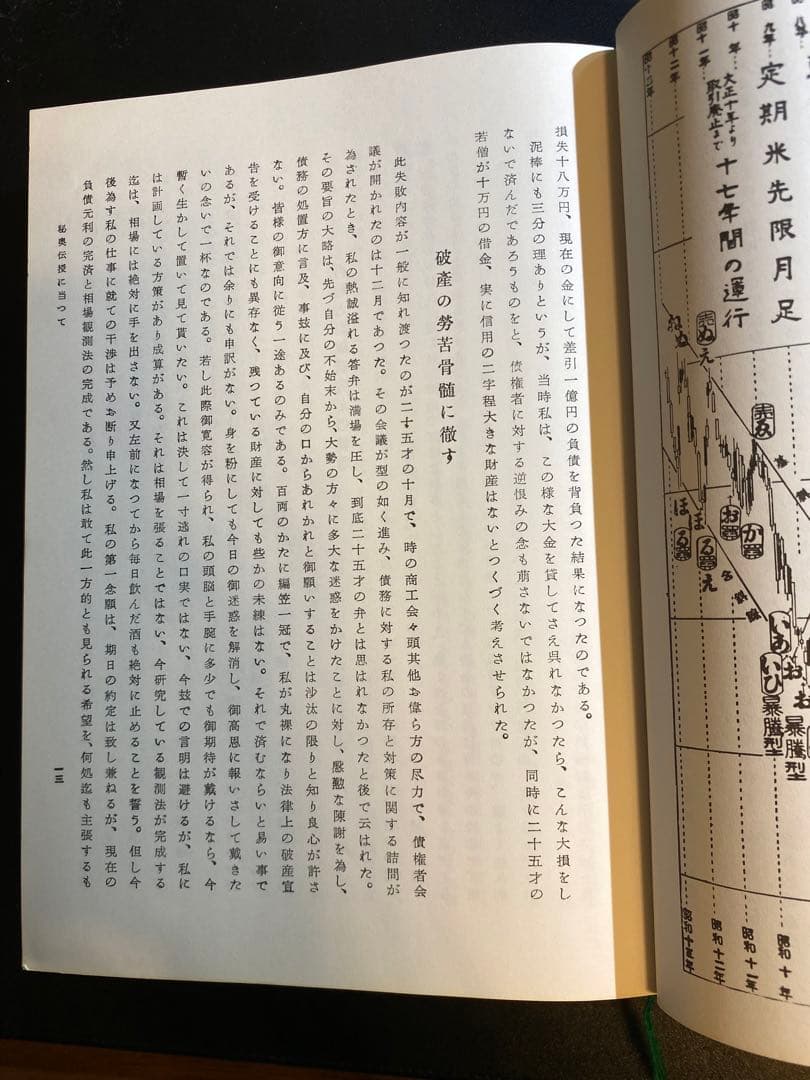 損失十八万円、現在の金にして差引一億円の負債を背負つた結果になつたのである。
泥棒にも三分の理ありというが、当時私は、この様な大金を貸してさえ呉れなかつたら、こんな大損をし
ないで済んだであろうものをと、債権者に対する逆恨みの念も萠さないではなかつたが、同時に二十五才の
若僧が十万円の借金、実に信用の二字程大きな財産はないとつくづく考えさせられた。
破産の勞苦骨髄に徹す
此失敗内容が一般に知れ渡つたのが二十五才の十月で、時の商工会々頭其他お偉ら方の尽力で、債権者会
議が開かれたのは十二月であつた。その会議が型の如く進み、債務に対する私の所存と対策に関する詰問が
為されたとき、私の熱誠溢れる答弁は満場を圧し、到底二十五才の弁とは思はれなかつたと後で云はれた。
その要旨の大略は、先づ自分の不始末から、大勢の方々に多大な迷惑をかけたことに対し、慇懃な陳謝を為し、
債務の処置方に言及、事玆に及び、自分の口からあれかれと御願いすることは沙汰の限りと知り良心が許さ
ない。皆様の御意向に従う一途あるのみである。百両のかたに編笠一冠で、私が丸裸になり法律上の破産宣
告を受けることにも異存なく、残つている財産に対しても些かの未練はない。それで済むならいと易い事で
あるが、それでは余りにも申訳がない。身を粉にしても今日の御迷惑を解消し、御高恩に報いさして戴きた
いの念いで一杯なのである。若し此際御寛容が得られ、私の頭脳と手腕に多少でも御期待が戴けるなら、今
暫く生かして置いて見て貰いたい。これは決して一寸逃れの口実ではない、今玆での言明は避けるが、私に
は計画している方策があり成算がある。それは相場を張ることではない、今研究している観測法が完成する
迄は、相場には絶対に手を出さない。又左前になつてから毎日飲んだ酒も絶対に止めることを誓う。但し今
後為す私の仕事に就ての干渉は予めお断り申上げる。私の第一念願は、期日の約定は致し兼ねるが、現在の
負債元利の完済と相場観測法の完成である。然し私は敢て此一方的とも見られる希望を、何処迄も主張するも
秘奥伝授に当つて
一三
定期米先限月足
十七年間の運行
大正十年より
取引廃止まで
昭九年
昭十年
昭十一年
昭十二年
ねぬ
ぬえ
ほる
ほるえ
お
か
いお
いひ
暴騰型
お
暴騰型
昭和十年
昭和十一年
昭和十二年
昭和十三年